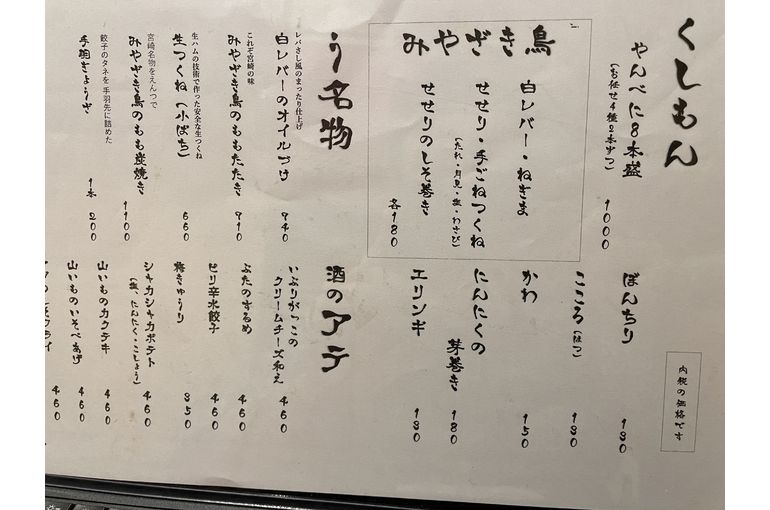 くしもん
やんべに8本盛
(お任せ4種2本ずつ)
1000
ぼんちり
130
こころ(はつ)
130
かわ
150
にんにくの
芽巻き
180
エリンギ
130
内税の価格です
みやざき鳥
白レバー・ねぎま
せせり・手ごねつくね
(たれ・月見・塩・わさび)
せせりのしそ巻き
各180
う名物
レバさし風のまったり仕上げ
白レバーのオイルづけ
940
これぞ宮崎の味
みやざき鳥のももたたき
910
生ハムの技術で作った安全な生つくね
生つくね(小ばち)
660
宮崎名物をえんつで
みやざき鳥のもも炭焼き
1100
餃子のタネを手羽先に詰めた
手羽ぎょうざ
1本 200
酒のアテ
いぶりがっこの
クリームチーズ和え
460
ぶたのするめ
460
セリ辛水餃子
460
梅きゅうり
350
シャカシャカポテト
(塩、にんにく・こしょう)
460
山いものカクテキ
460
山いものいそべあげ
460
フライ
460